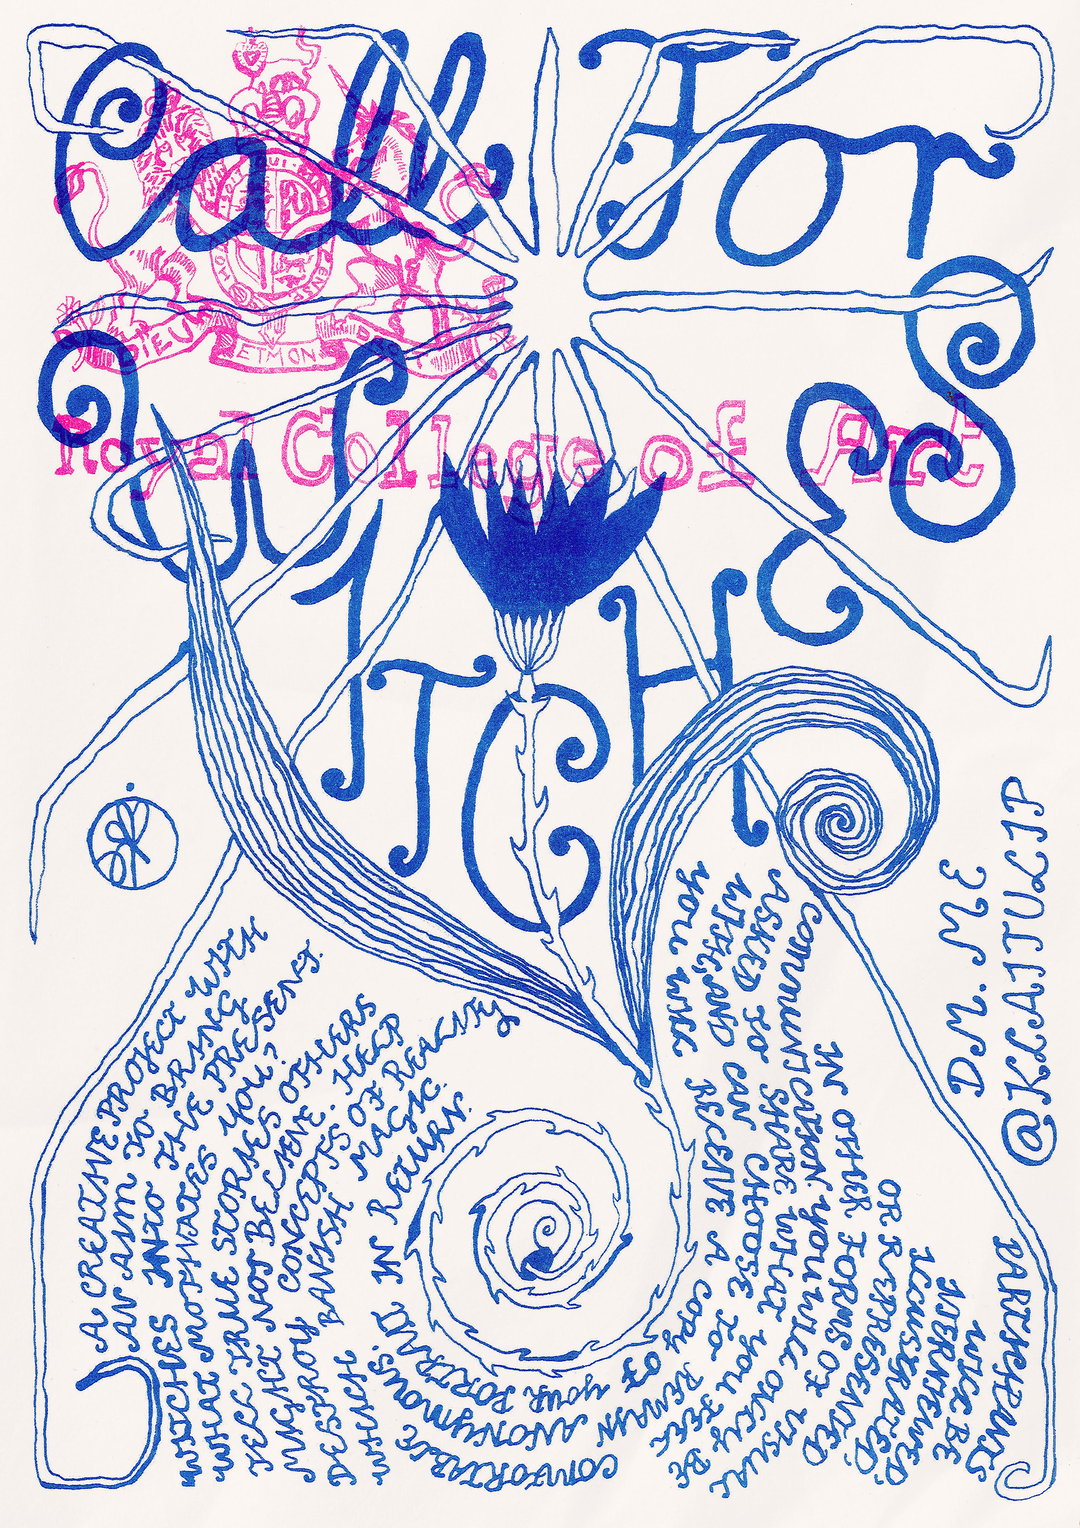 Call For
WITCHES
DIEU ET MON
Royal College of Art
A CREATIVE PROJECT WITH
AN AIM TO BRING
WITCHES INTO THE PRESENT.
WHAT MOTIVATES YOU?
TELL TRUE STORIES OTHERS
MIGHT NOT BELIEVE. HELP
DESTROY CONCEPTS OF REALITY
WHICH BANISH MAGIC.
PARTICIPANTS
WILL BE
INTERVIEWED,
ILLUSTRATED,
OR REPRESENTED
IN OTHER FORMS OF VISUAL
COMMUNICATION. YOU WILL ONLY BE
ASKED TO SHARE WHAT YOU FEEL
COMFORTABLE WITH, AND CAN CHOOSE TO REMAIN ANONYMOUS.
YOU WILL RECEIVE A COPY OF YOUR PORTRAIT IN RETURN.
@KLAITULIP